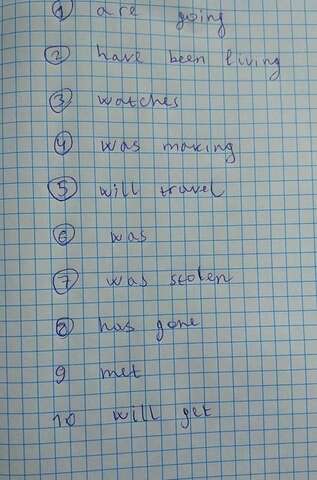 1 are going
2 have been living
3 watches
4 was making
5 will travel
6 was
7 was stolen
8 has gone
9 met
10 will get